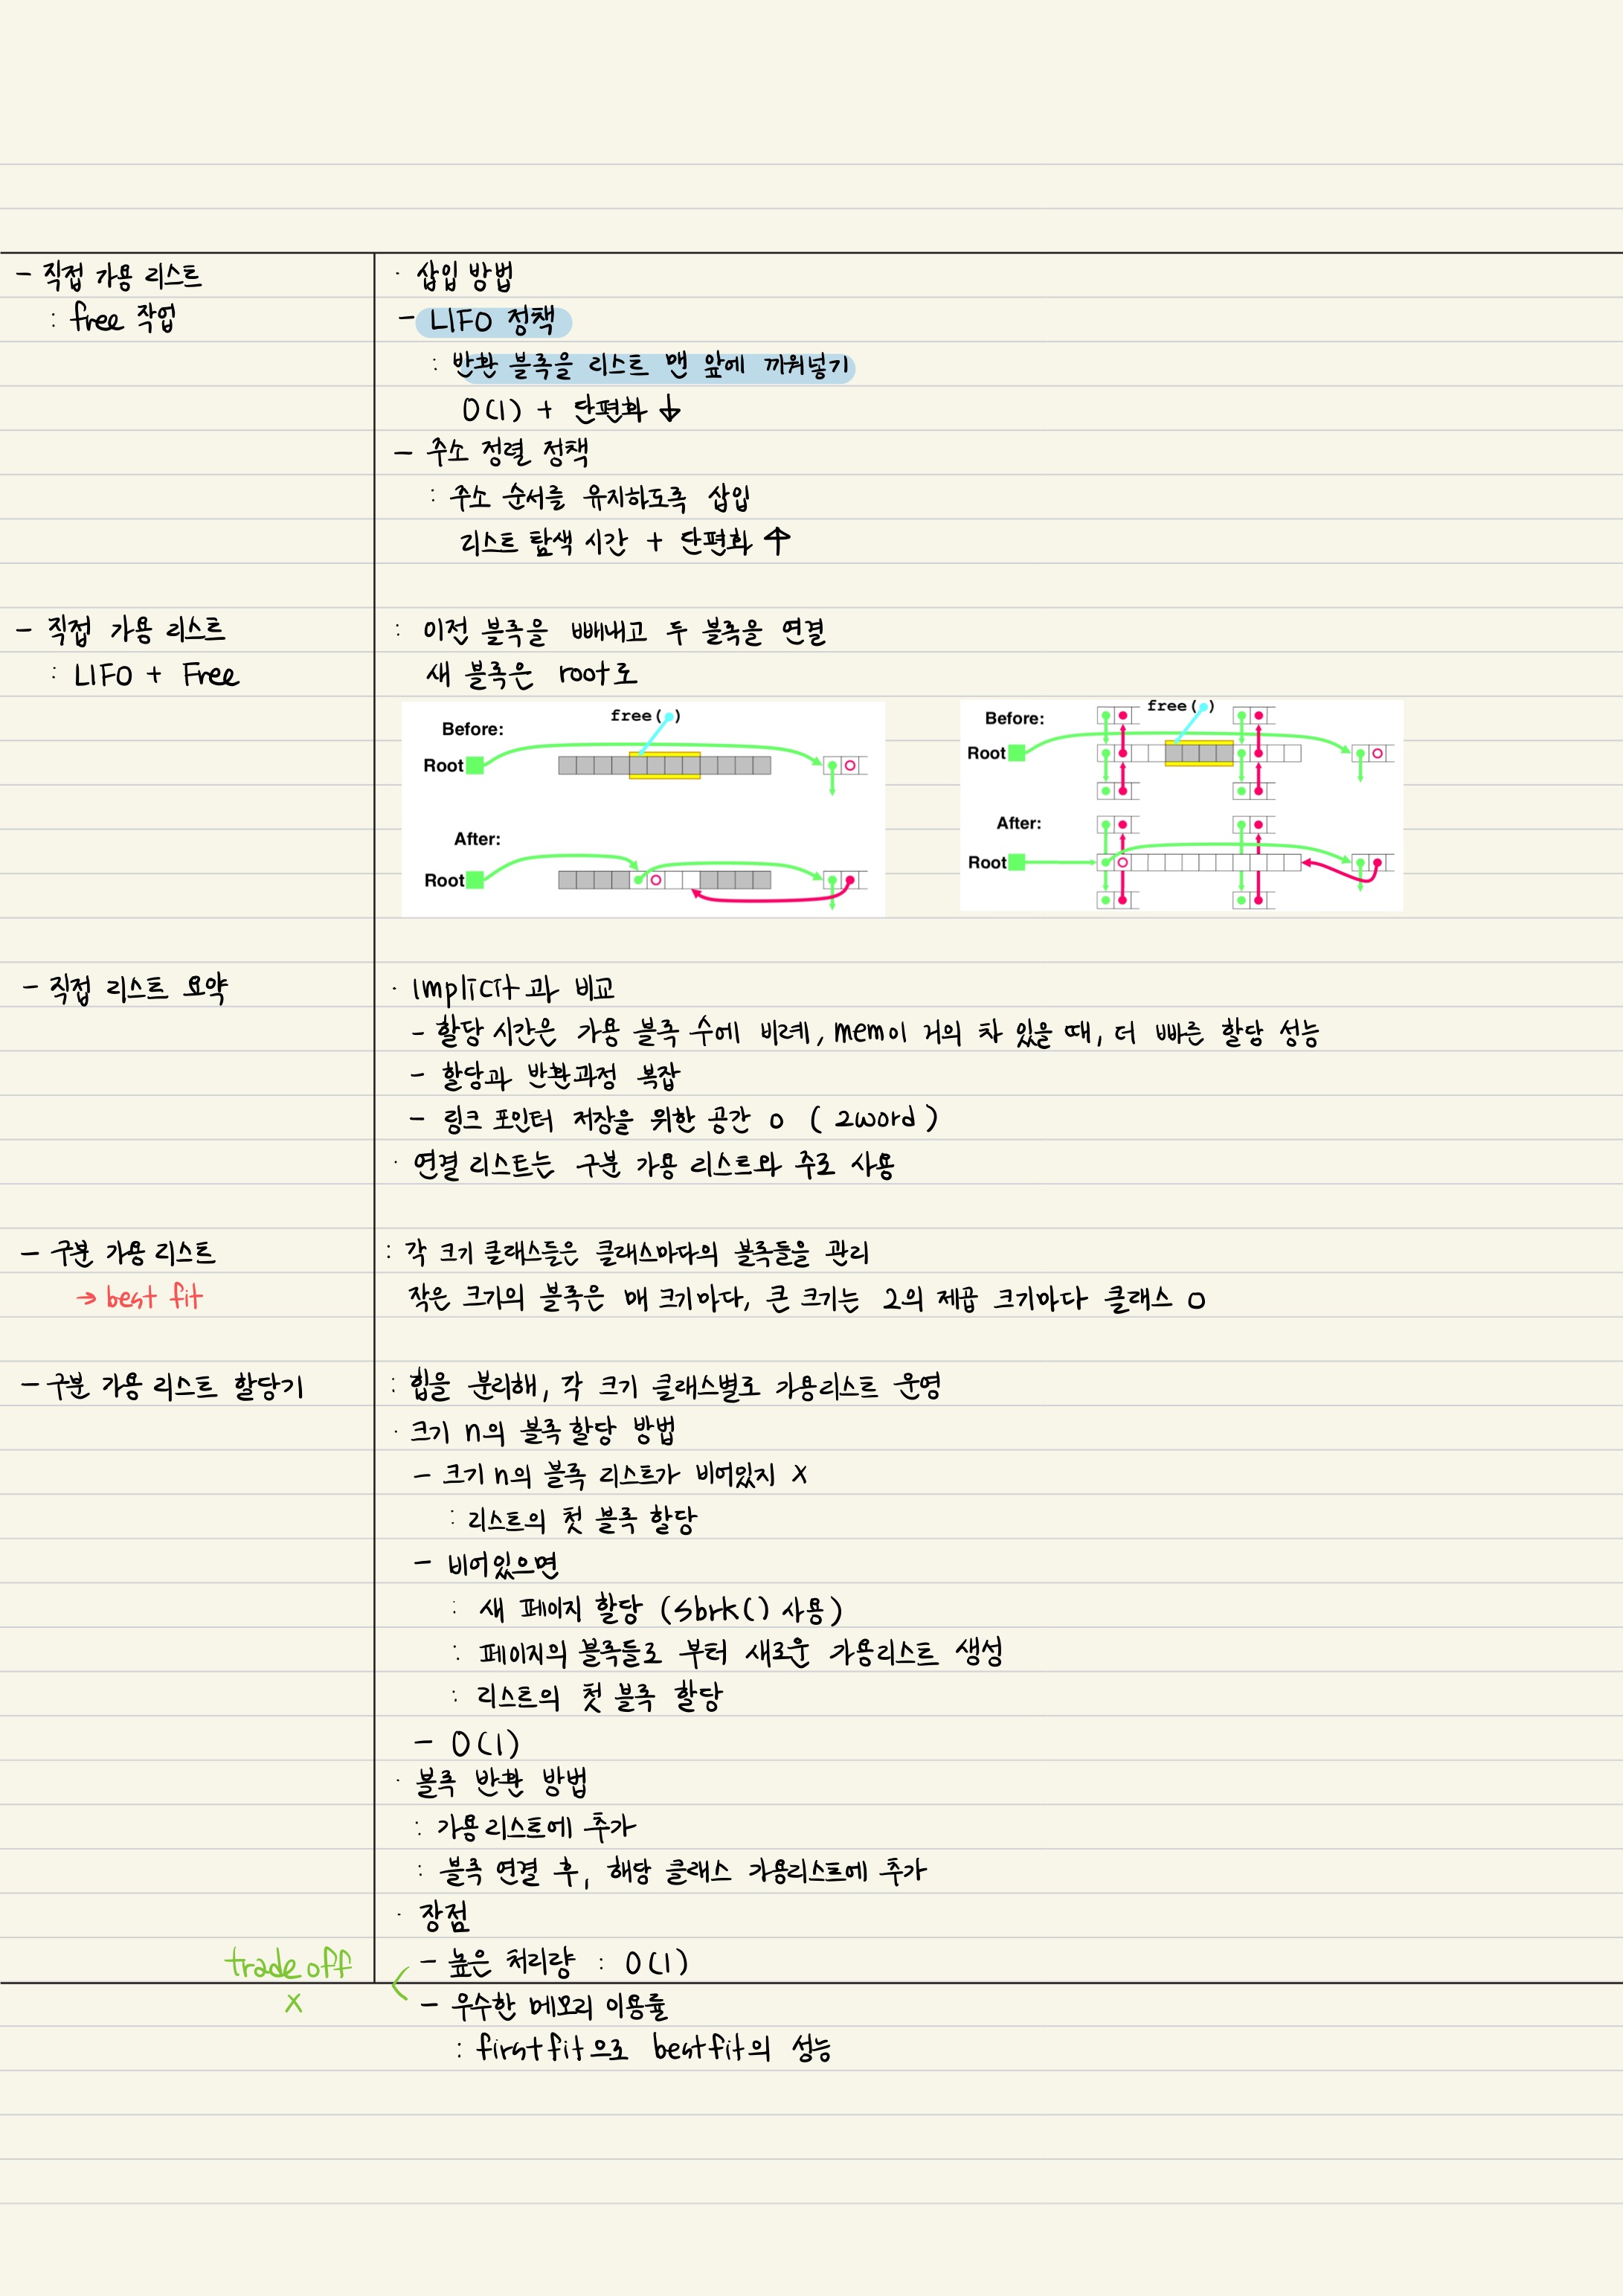 - 직접 가용 리스트
: free 작업
· 삽입 방법
- LIFO 정책
: 반환 블록을 리스트 맨 앞에 끼워넣기
O(1) + 단편화 ↓
- 주소 정렬 정책
: 주소 순서를 유지하도록 삽입
리스트 탐색 시간 + 단편화 ↑
- 직접 가용 리스트
: LIFO + Free
: 이전 블록을 빼내고 두 블록을 연결
새 블록은 root로
free( )
Before:
Root
After:
Root
free( )
Before:
Root
After:
Root
- 직접 리스트 요약
· Implicit과 비교
- 할당 시간은 가용 블록 수에 비례, mem이 거의 차 있을 때, 더 빠른 할당 성능
- 할당과 반환과정 복잡
- 링크 포인터 저장을 위한 공간 o ( 2word )
· 연결 리스트는 구분 가용 리스트와 주로 사용
- 구분 가용 리스트
→ best fit
: 각 크기 클래스들은 클래스마다의 블록들을 관리
작은 크기의 블록은 매 크기마다, 큰 크기는 2의 제곱 크기마다 클래스 o
- 구분 가용 리스트 할당기
: 힙을 분리해, 각 크기 클래스별로 가용리스트 운영
· 크기 n의 블록 할당 방법
- 크기 n의 블록 리스트가 비어있지 x
: 리스트의 첫 블록 할당
- 비어있으면
: 새 페이지 할당 (sbrk() 사용)
: 페이지의 블록들로 부터 새로운 가용리스트 생성
: 리스트의 첫 블록 할당
- O(1)
· 블록 반환 방법
: 가용리스트에 추가
: 블록 연결 후, 해당 클래스 가용리스트에 추가
· 장점
trade off
x
- 높은 처리량 : O(1)
- 우수한 메모리 이용률
: first fit으로 best fit의 성능